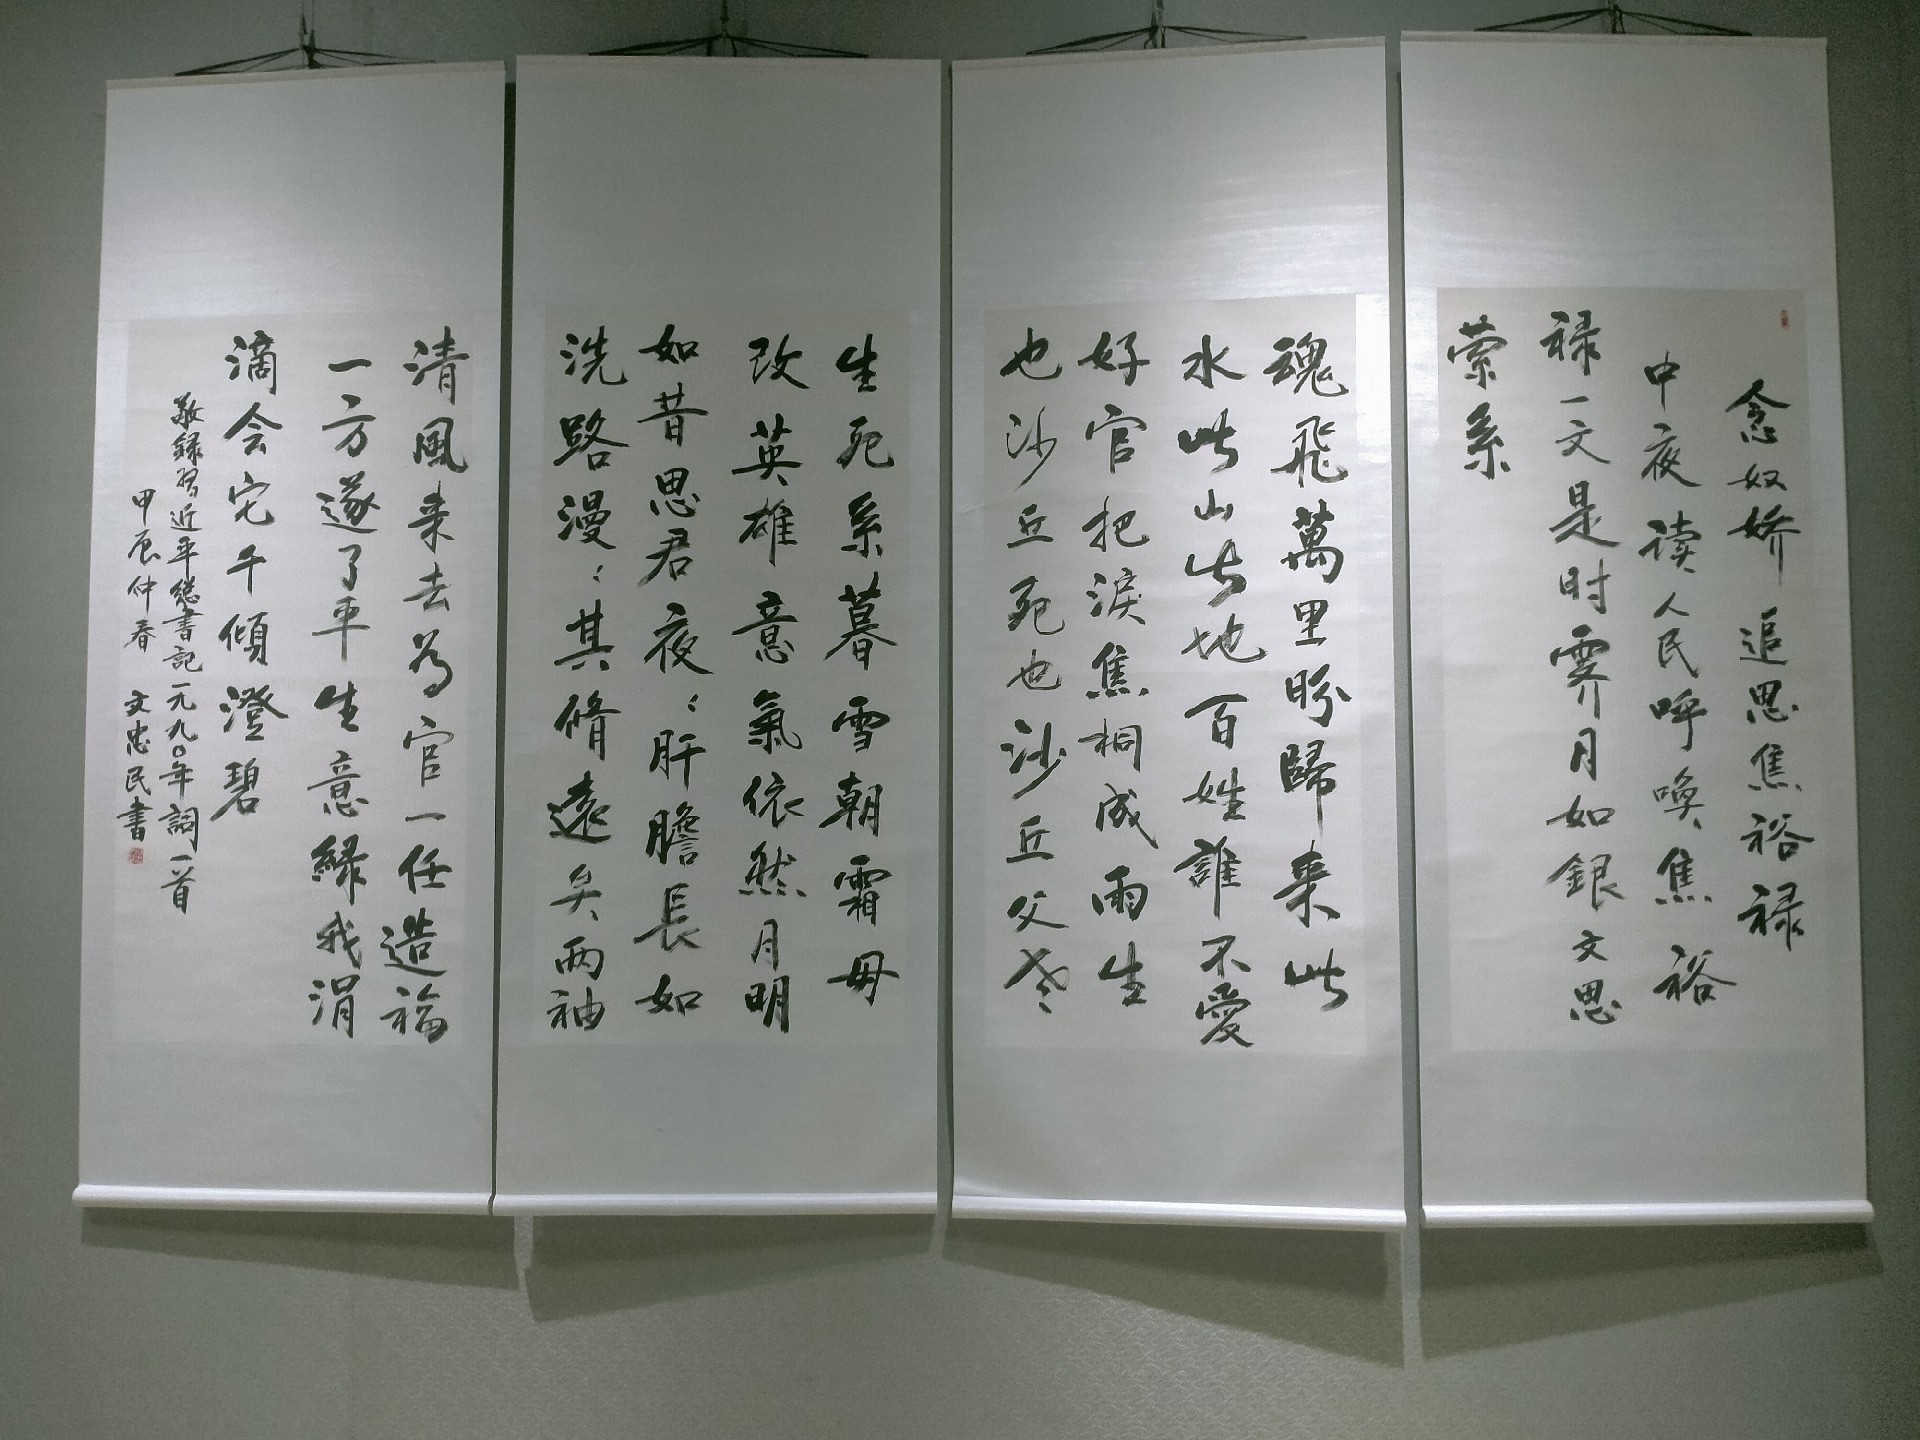 念奴娇 追思焦裕禄
中夜读人民呼唤焦裕
禄一文是时霁月如銀文思
萦系
魂飛萬里盼歸来此
水此山此地百姓誰不愛
好官把淚焦桐成雨生
也沙丘死也沙丘父老
生死系暮雪朝霜毋
改英雄意氣依然月明
如昔思君夜〻肝膽長如
洗路漫〻其脩遠矣两袖
清風来去為官一任造福
一方遂了平生意绿我涓
滴会它千傾澄碧
敬録習近平總書記一九九〇年詞一首
甲辰仲春 文忠民書